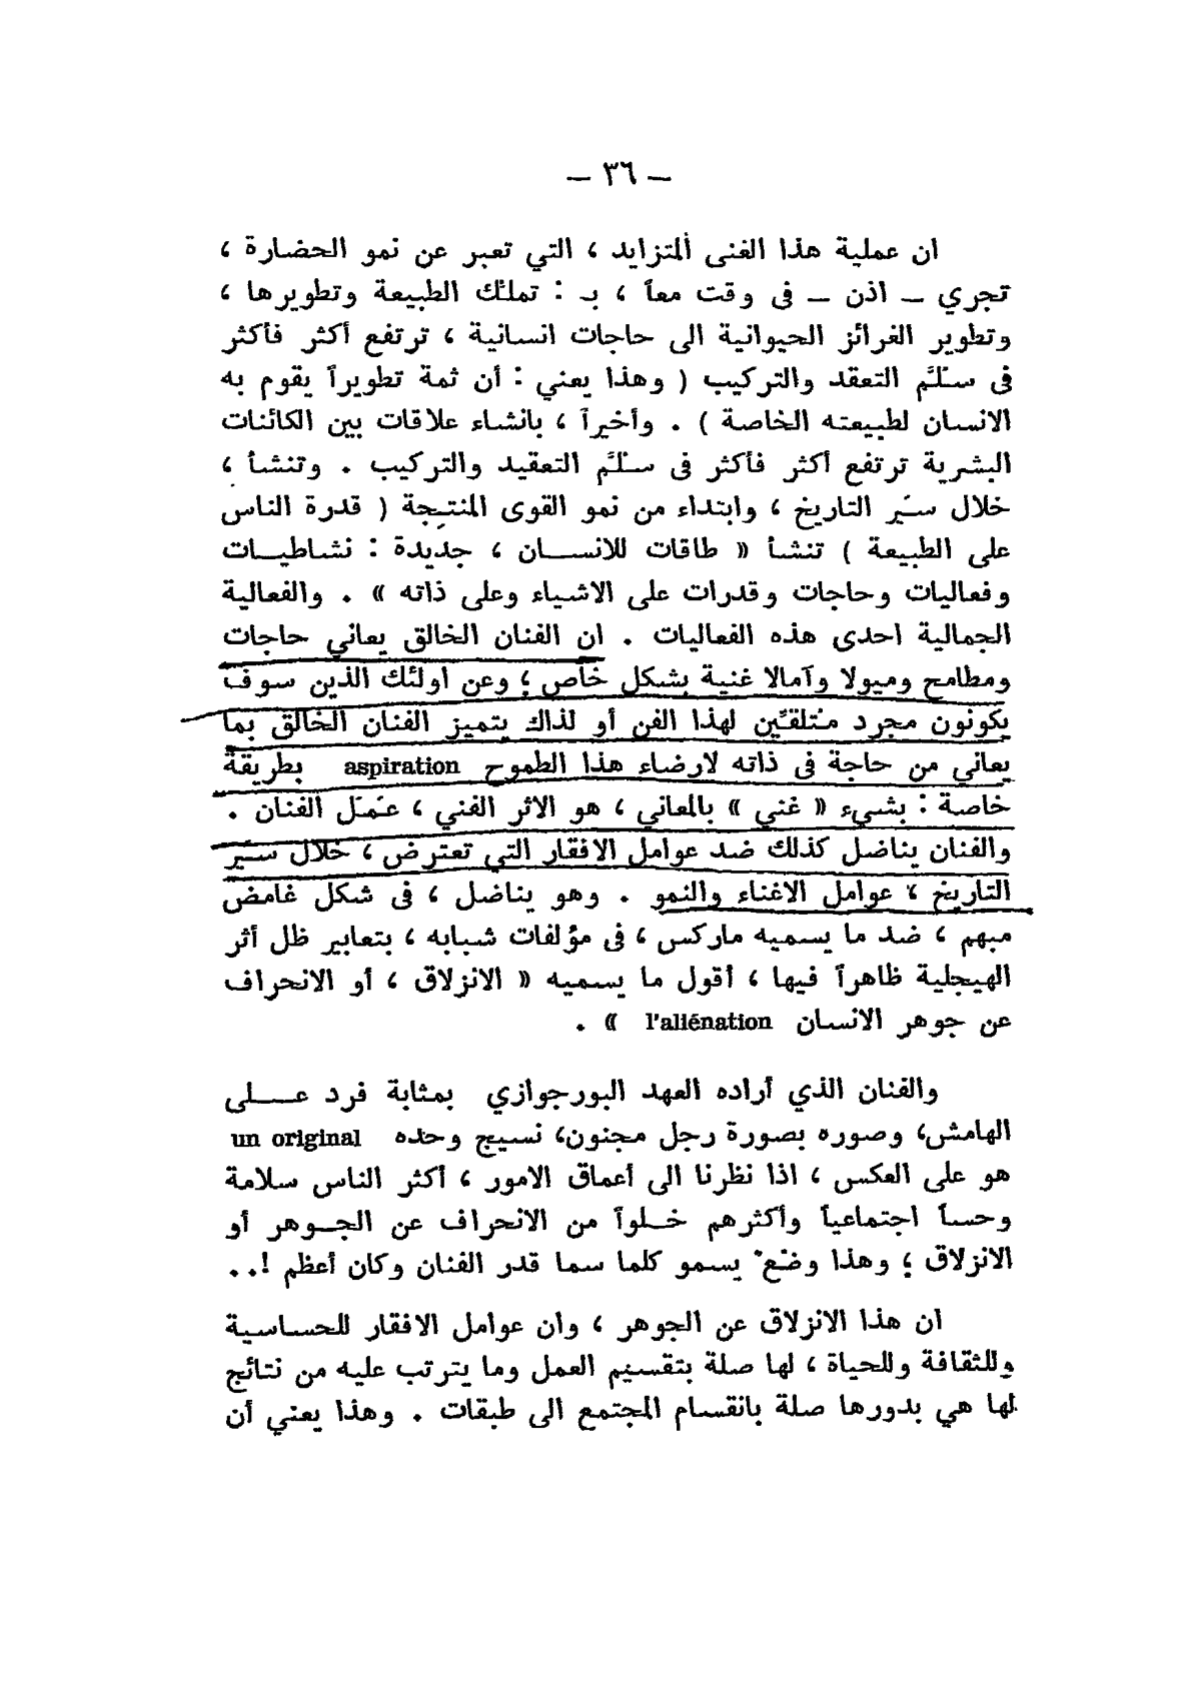 ـ ٣٦ ـ
ان عملية هذا الغنى المتزايد ، التي تعبر عن نمو الحضارة ،
تجري ـ اذن ـ فى وقت معاً ، بـ : تملك الطبيعة وتطويرها ،
وتطوير الغرائز الحيوانية الى حاجات انسانية ، ترتفع أكثر فأكثر
فى سلَّم التعقد والتركيب ( وهذا يعني : أن ثمة تطويراً يقوم به
الانسان لطبيعته الخاصة ) . وأخيراً ، بانشاء علاقات بين الكائنات
البشرية ترتفع أكثر فأكثر فى سلَّم التعقيد والتركيب . وتنشأ ،
خلال سيَر التاريخ ، وابتداء من نمو القوى المنتجة ( قدرة الناس
على الطبيعة ) تنشأ « طاقات للانســـان ، جديدة : نشاطيـــات
وفعاليات وحاجات وقدرات على الاشياء وعلى ذاته » . والفعالية
الجمالية احدى هذه الفعاليات . ان الفنان الخالق يعاني حاجات
ومطامح وميولا وآمالا غنية بشكل خاص ؛ وعن اولئك الذين سوف
يكونون مجرد متلقّين لهذا الفن أو لذاك يتميز الفنان الخالق بما
يعاني من حاجة فى ذاته لارضاء هذا الطموح aspiration بطريقة
خاصة : بشيء « غني » بالمعاني ، هو الاثر الفني ، عمَل الفنان .
والفنان يناضل كذلك ضد عوامل الافقار التي تعترض ، خلال سيَر
التاريخ ، عوامل الاغناء والنمو . وهو يناضل ، فى شكل غامض
مبهم ، ضد ما يسميه ماركس ، فى مؤلفات شبابه ، بتعابير ظل أثر
الهيجلية ظاهراً فيها ، أقول ما يسميه « الانزلاق ، أو الانحراف
عن جوهر الانسان l'aliénation » .
والفنان الذي أراده العهد البورجوازي بمثابة فرد عـــلى
الهامش، وصوره بصورة رجل مجنون، نسيج وحده un original
هو على العكس ، اذا نظرنا الى أعماق الامور ، أكثر الناس سلامة
وحساً اجتماعياً وأكثرهم خــلواً من الانحراف عن الجــوهر أو
الانزلاق ؛ وهذا وضْع يسمو كلما سما قدر الفنان وكان أعظم !..
ان هذا الانزلاق عن الجوهر ، وان عوامل الافقار للحساسية
وللثقافة وللحياة ، لها صلة بتقسيم العمل وما يترتب عليه من نتائج
لها هي بدورها صلة بانقسام المجتمع الى طبقات . وهذا يعني أن